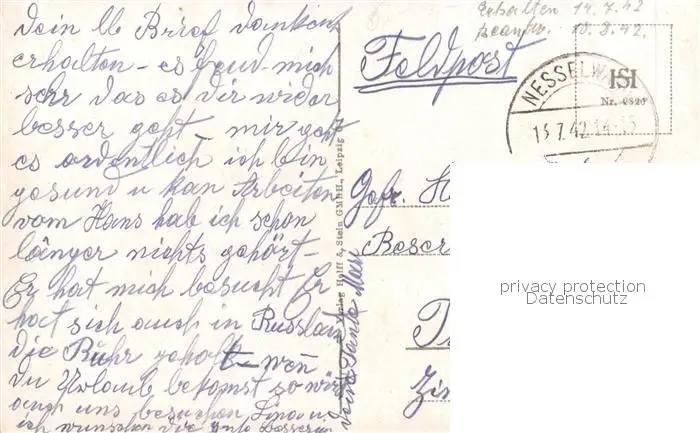 Dein lb Brief dankend
erhalten - es freud mich
sehr das es dir wieder
besser geht mir geht
es ordentlich ich bin
gesund u kan Arbeiten
vom Hans hab ich schon
länger nichts gehört -
Er hat mich besucht Er
hat sich auch in Russland
die Ruhr geholt - wen̄
du Urlaub bekomst so wirst
auch uns besuchen, Lina u
ich wünschen dir gute Besserung
deine Tante Mari
Verlag Helff & Stein GMBH., Leipzig
Erhalten 14.7.42
Beantw. 10.8.42.
Feldpost
NESSELW
15.7.42.14-15
HSI
Nr. 6826
Gefr. H
Reser
Zi
privacy protection
Datenschutz